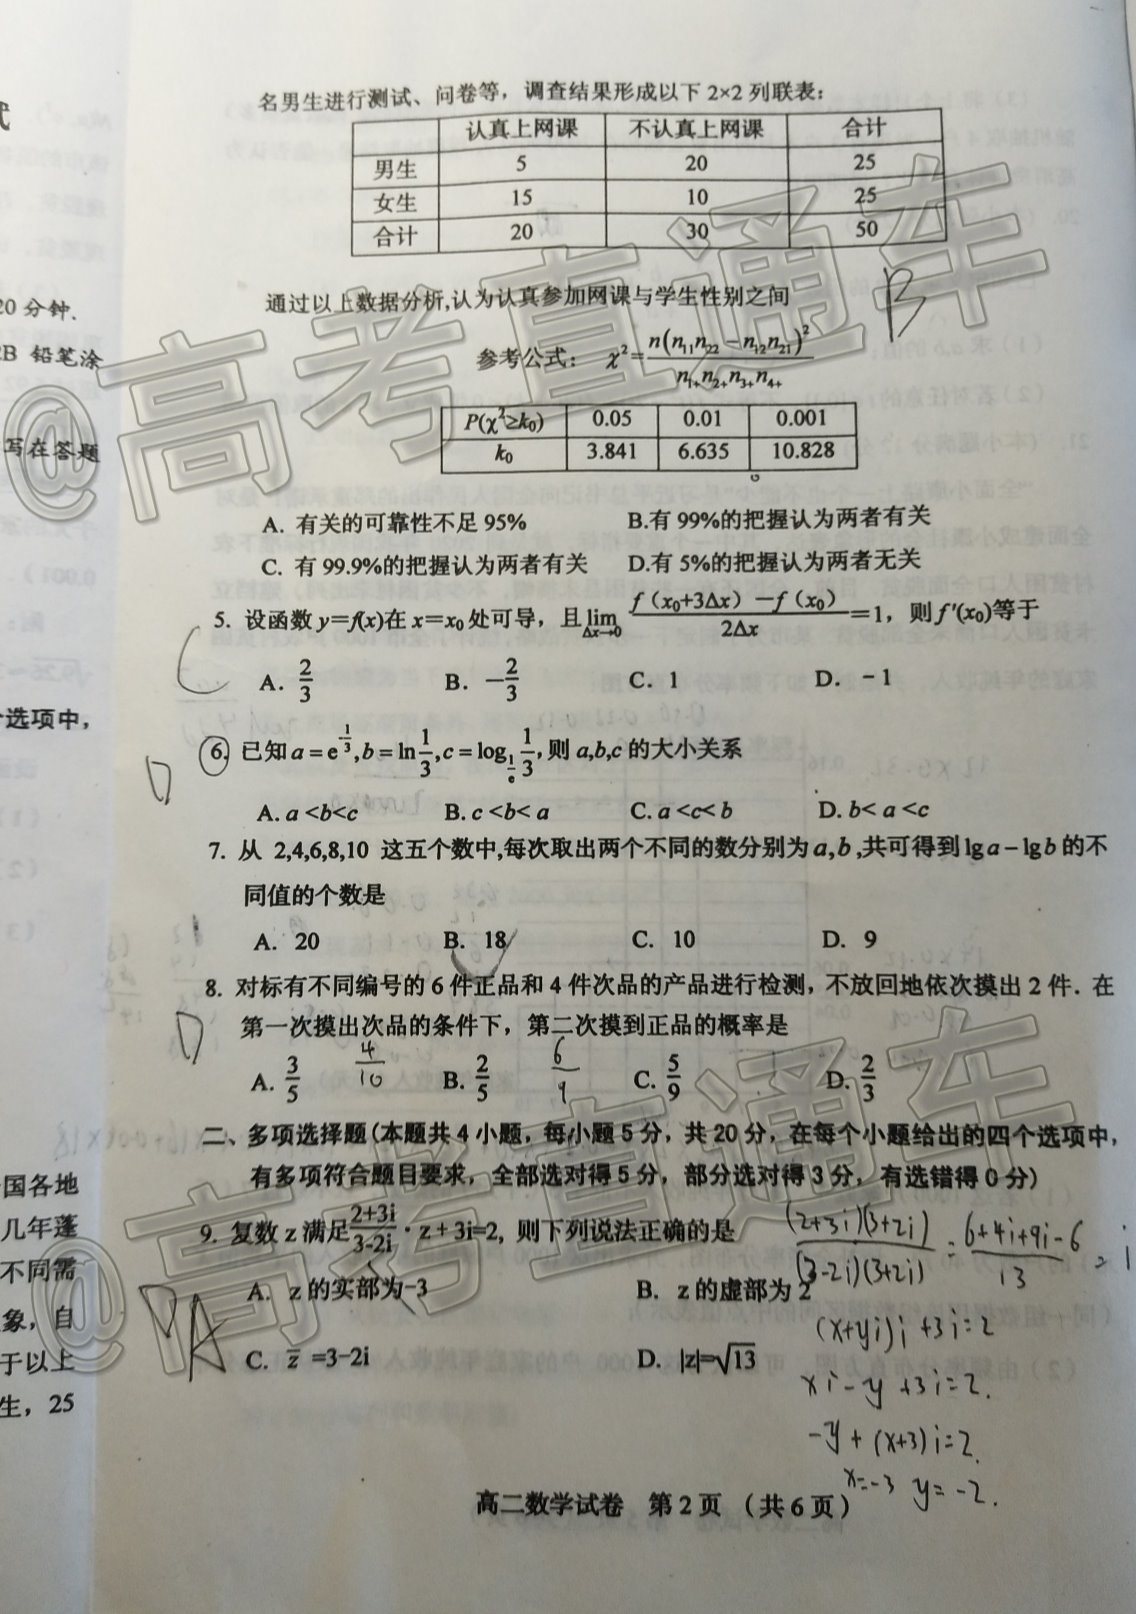 式
20分钟.
2B 铅笔涂
写在答题
个选项中，
国各地
几年蓬
不同需
象，自
于以上
生，25
名男生进行测试、问卷等，调查结果形成以下 2×2 列联表：
认真上网课 不认真上网课 合计
男生 5 20 25
女生 15 10 25
合计 20 30 50
通过以上数据分析,认为认真参加网课与学生性别之间
B
参考公式： χ²=n(n₁₁n₂₂－n₁₂n₂₁)²/n₁₊n₂₊n₃₊n₄₊
P(χ²≥k₀) 0.05 0.01 0.001
k₀ 3.841 6.635 10.828
A. 有关的可靠性不足 95% B.有 99%的把握认为两者有关
C. 有 99.9%的把握认为两者有关 D.有 5%的把握认为两者无关
C
5. 设函数 y＝f(x)在 x＝x₀ 处可导，且 lim Δx→0 f（x₀+3Δx）－f（x₀）/2Δx＝1，则 f′(x₀)等于
A. 2/3 B. －2/3 C. 1 D. －1
D
6. 已知 a = e^(1/3), b = ln 1/3, c = log_(1/e) 1/3, 则 a,b,c 的大小关系
A. a <b<c B. c <b< a C. a <c< b D. b< a <c
7. 从 2,4,6,8,10 这五个数中,每次取出两个不同的数分别为 a,b ,共可得到 lg a－lg b 的不
同值的个数是
A. 20 B. 18 C. 10 D. 9
8. 对标有不同编号的 6 件正品和 4 件次品的产品进行检测，不放回地依次摸出 2 件．在
第一次摸出次品的条件下，第二次摸到正品的概率是
D
4/10 6/9
A. 3/5 B. 2/5 C. 5/9 D. 2/3
二、多项选择题(本题共 4 小题，每小题 5 分，共 20 分，在每个小题给出的四个选项中，
有多项符合题目要求，全部选对得 5 分，部分选对得 3 分，有选错得 0 分)
9. 复数 z 满足 2+3i/3-2i · z + 3i=2, 则下列说法正确的是
(2+3i)(3+2i)/(3-2i)(3+2i) = 6+4i+9i-6/13 = i
A. z 的实部为-3 B. z 的虚部为 2
DA
(x+yi)i +3i=2
C. z̄ =3-2i D. |z|=√13
xi-y+3i=2.
-y+(x+3)i=2.
x=-3 y=-2.
高二数学试卷 第 2 页 （共 6 页）
@高考直通车
@高考直通车